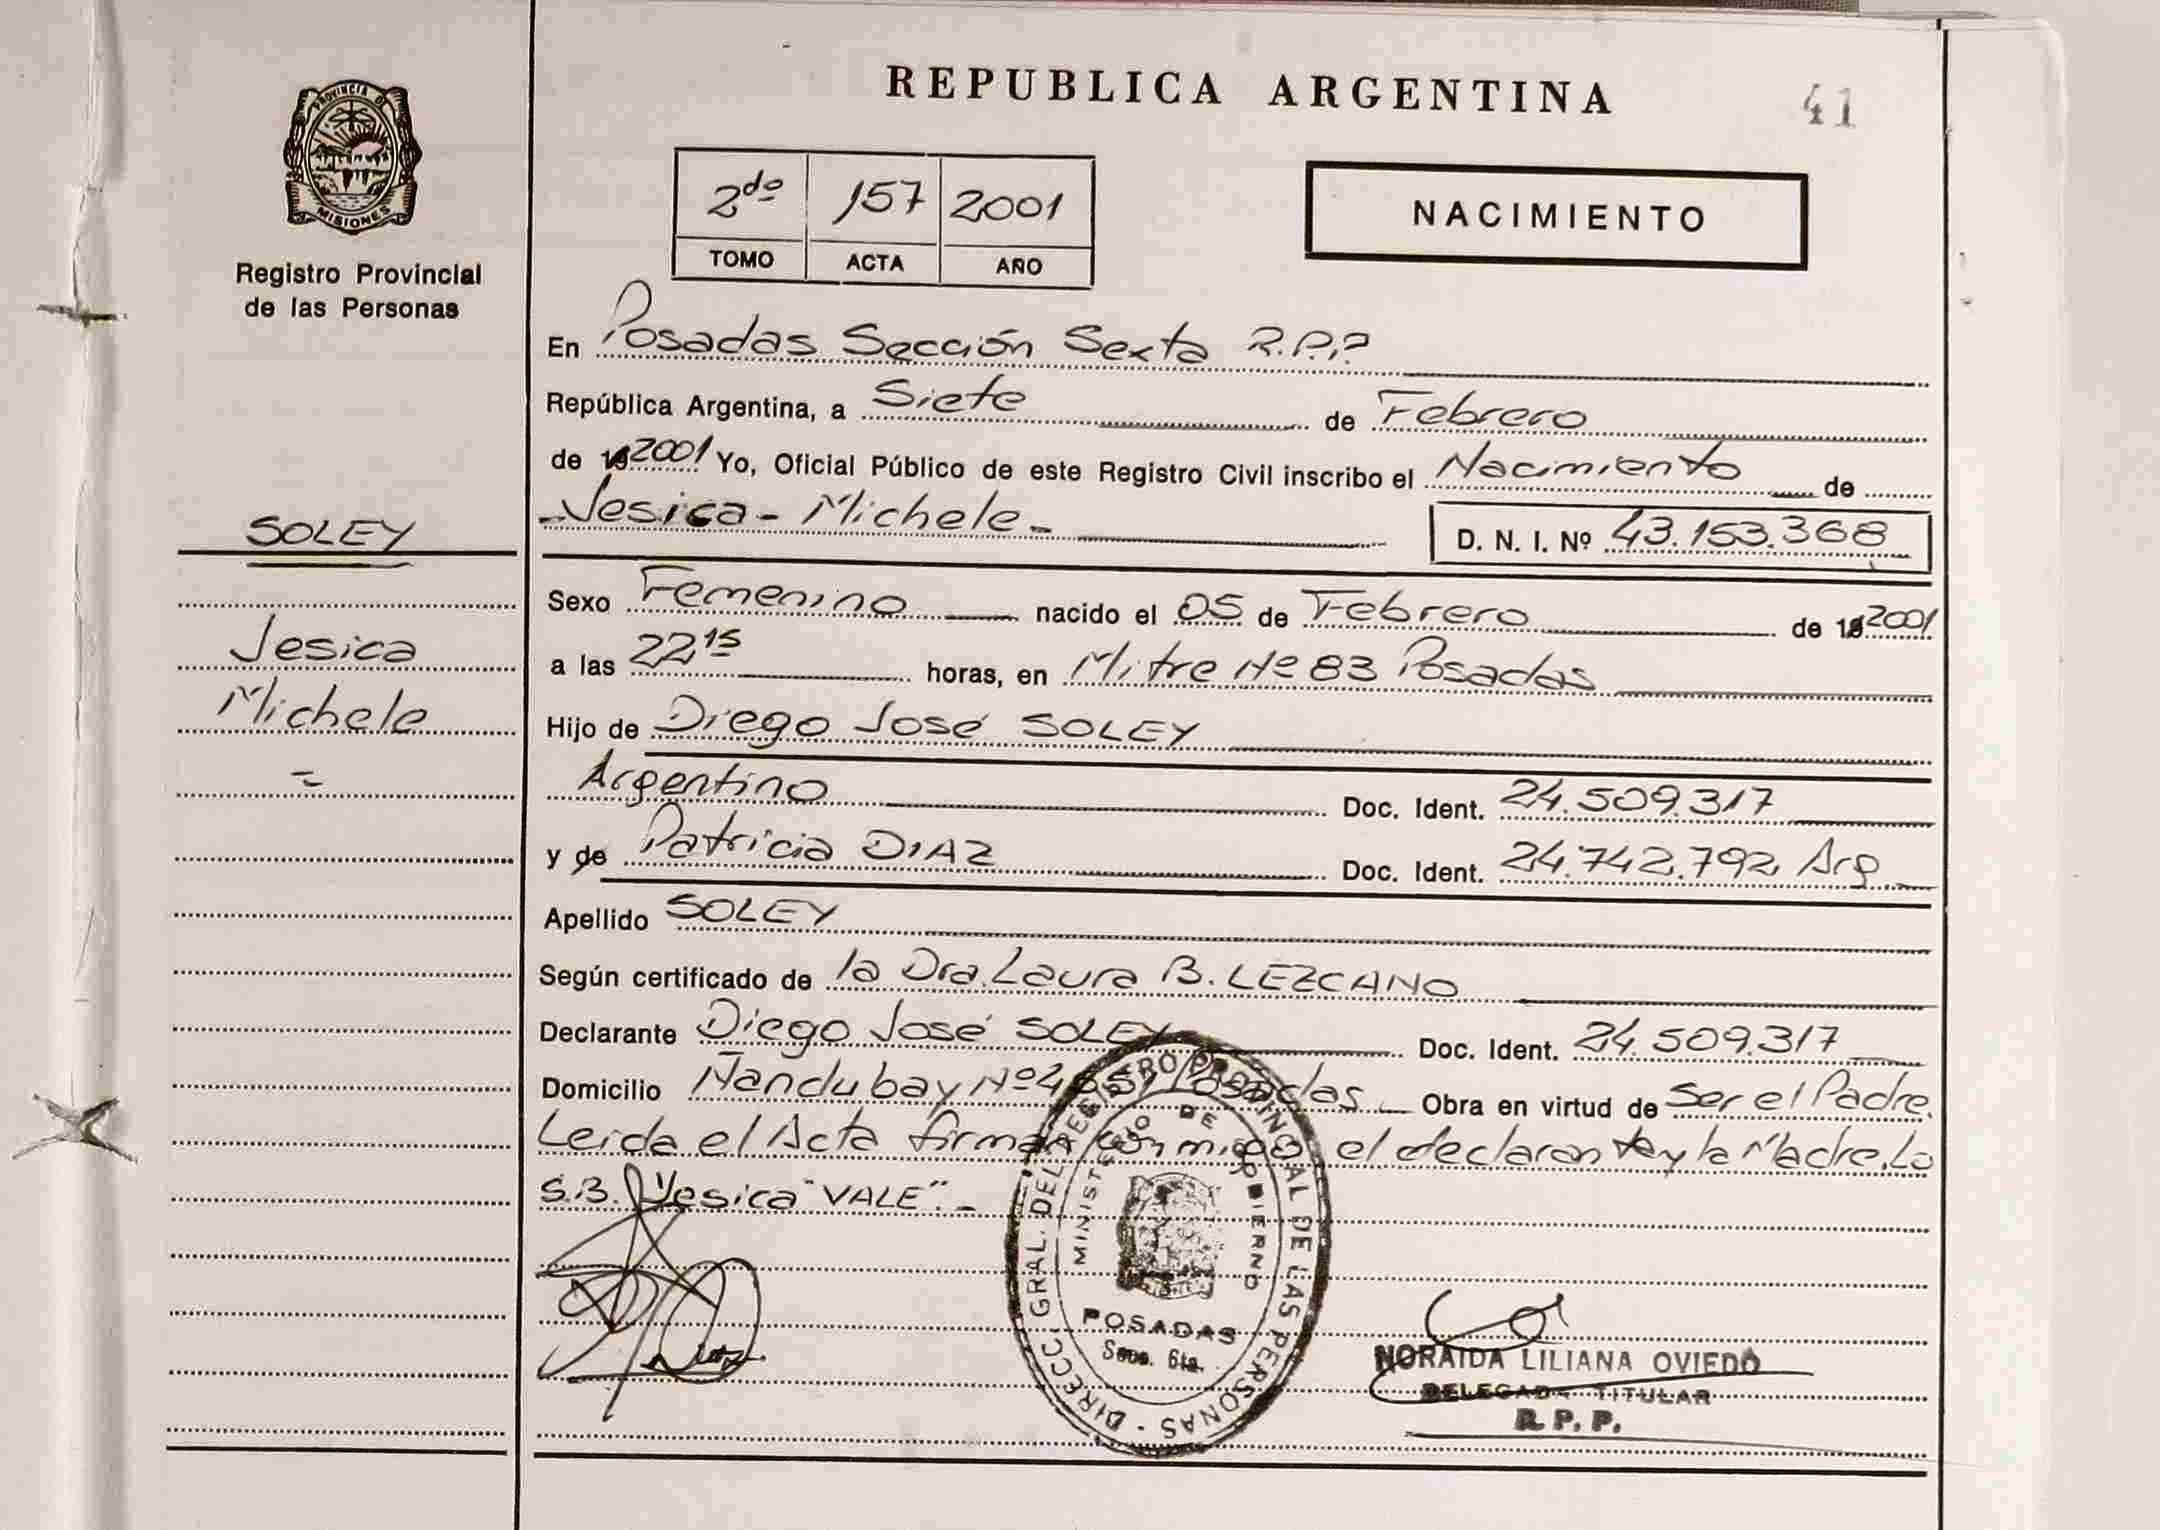 REPUBLICA ARGENTINA
41
PROVINCIA DE
MISIONES
Registro Provincial
de las Personas
2do 157 2001
TOMO ACTA AÑO
NACIMIENTO
En Posadas Sección Sexta R.P.P
República Argentina, a Siete de Febrero
de 192001 Yo, Oficial Público de este Registro Civil inscribo el Nacimiento de
-Jesica - Michele-
D. N. I. Nº 43.153.368
SOLEY
Jesica
Michele
Sexo Femenino nacido el 05 de Febrero de 192001
a las 22 15 horas, en Mitre Nº 83 Posadas
Hijo de Diego José SOLEY
Argentino Doc. Ident. 24.509.317
y de Patricia DIAZ Doc. Ident. 24.742.792 Arg
Apellido SOLEY
Según certificado de la Dra. Laura B. LEZCANO
Declarante Diego José SOLEY Doc. Ident. 24.509.317
Domicilio Ñandubay Nº Posadas Obra en virtud de Ser el Padre.
Leida el Acta firman conmigo el declarante y la Madre. Lo
S.B. Jesica "VALE".-
DIRECC. GRAL. DEL REGISTRO PROVINCIAL DE LAS PERSONAS
MINISTERIO DE GOBIERNO
POSADAS
Secc. 6ta.
NORAIDA LILIANA OVIEDO
DELEGADA TITULAR
R. P. P.